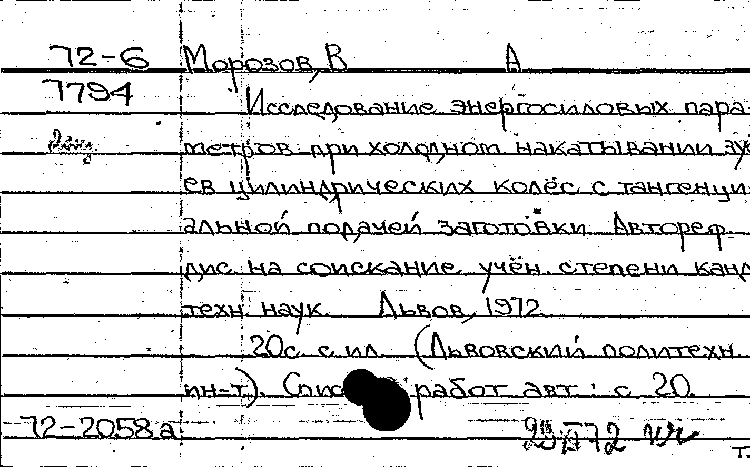 72-6 Морозов, В А
7794
Исследование энергосиловых пара-
метров при холодном накатывании зу
ев цилиндрических колёс с тангенци
альной подачей заготовки. Автореф.
дис. на соискание учён. степени канд
техн. наук. Львов, 1972.
20с. с ил. (Львовский политехн.
ин-т). Спис работ авт.: с. 20.
72-2058a